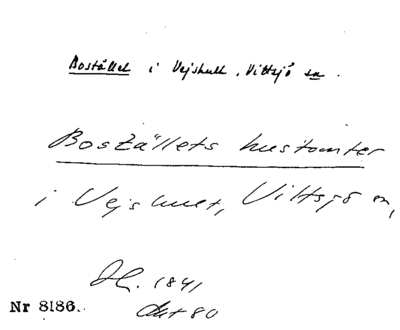 Bostället i Vejshult, Vittsjö sn.
Boställets hustomter
i Vejshult, Vittsjö sn,
1841
Nr 8186.